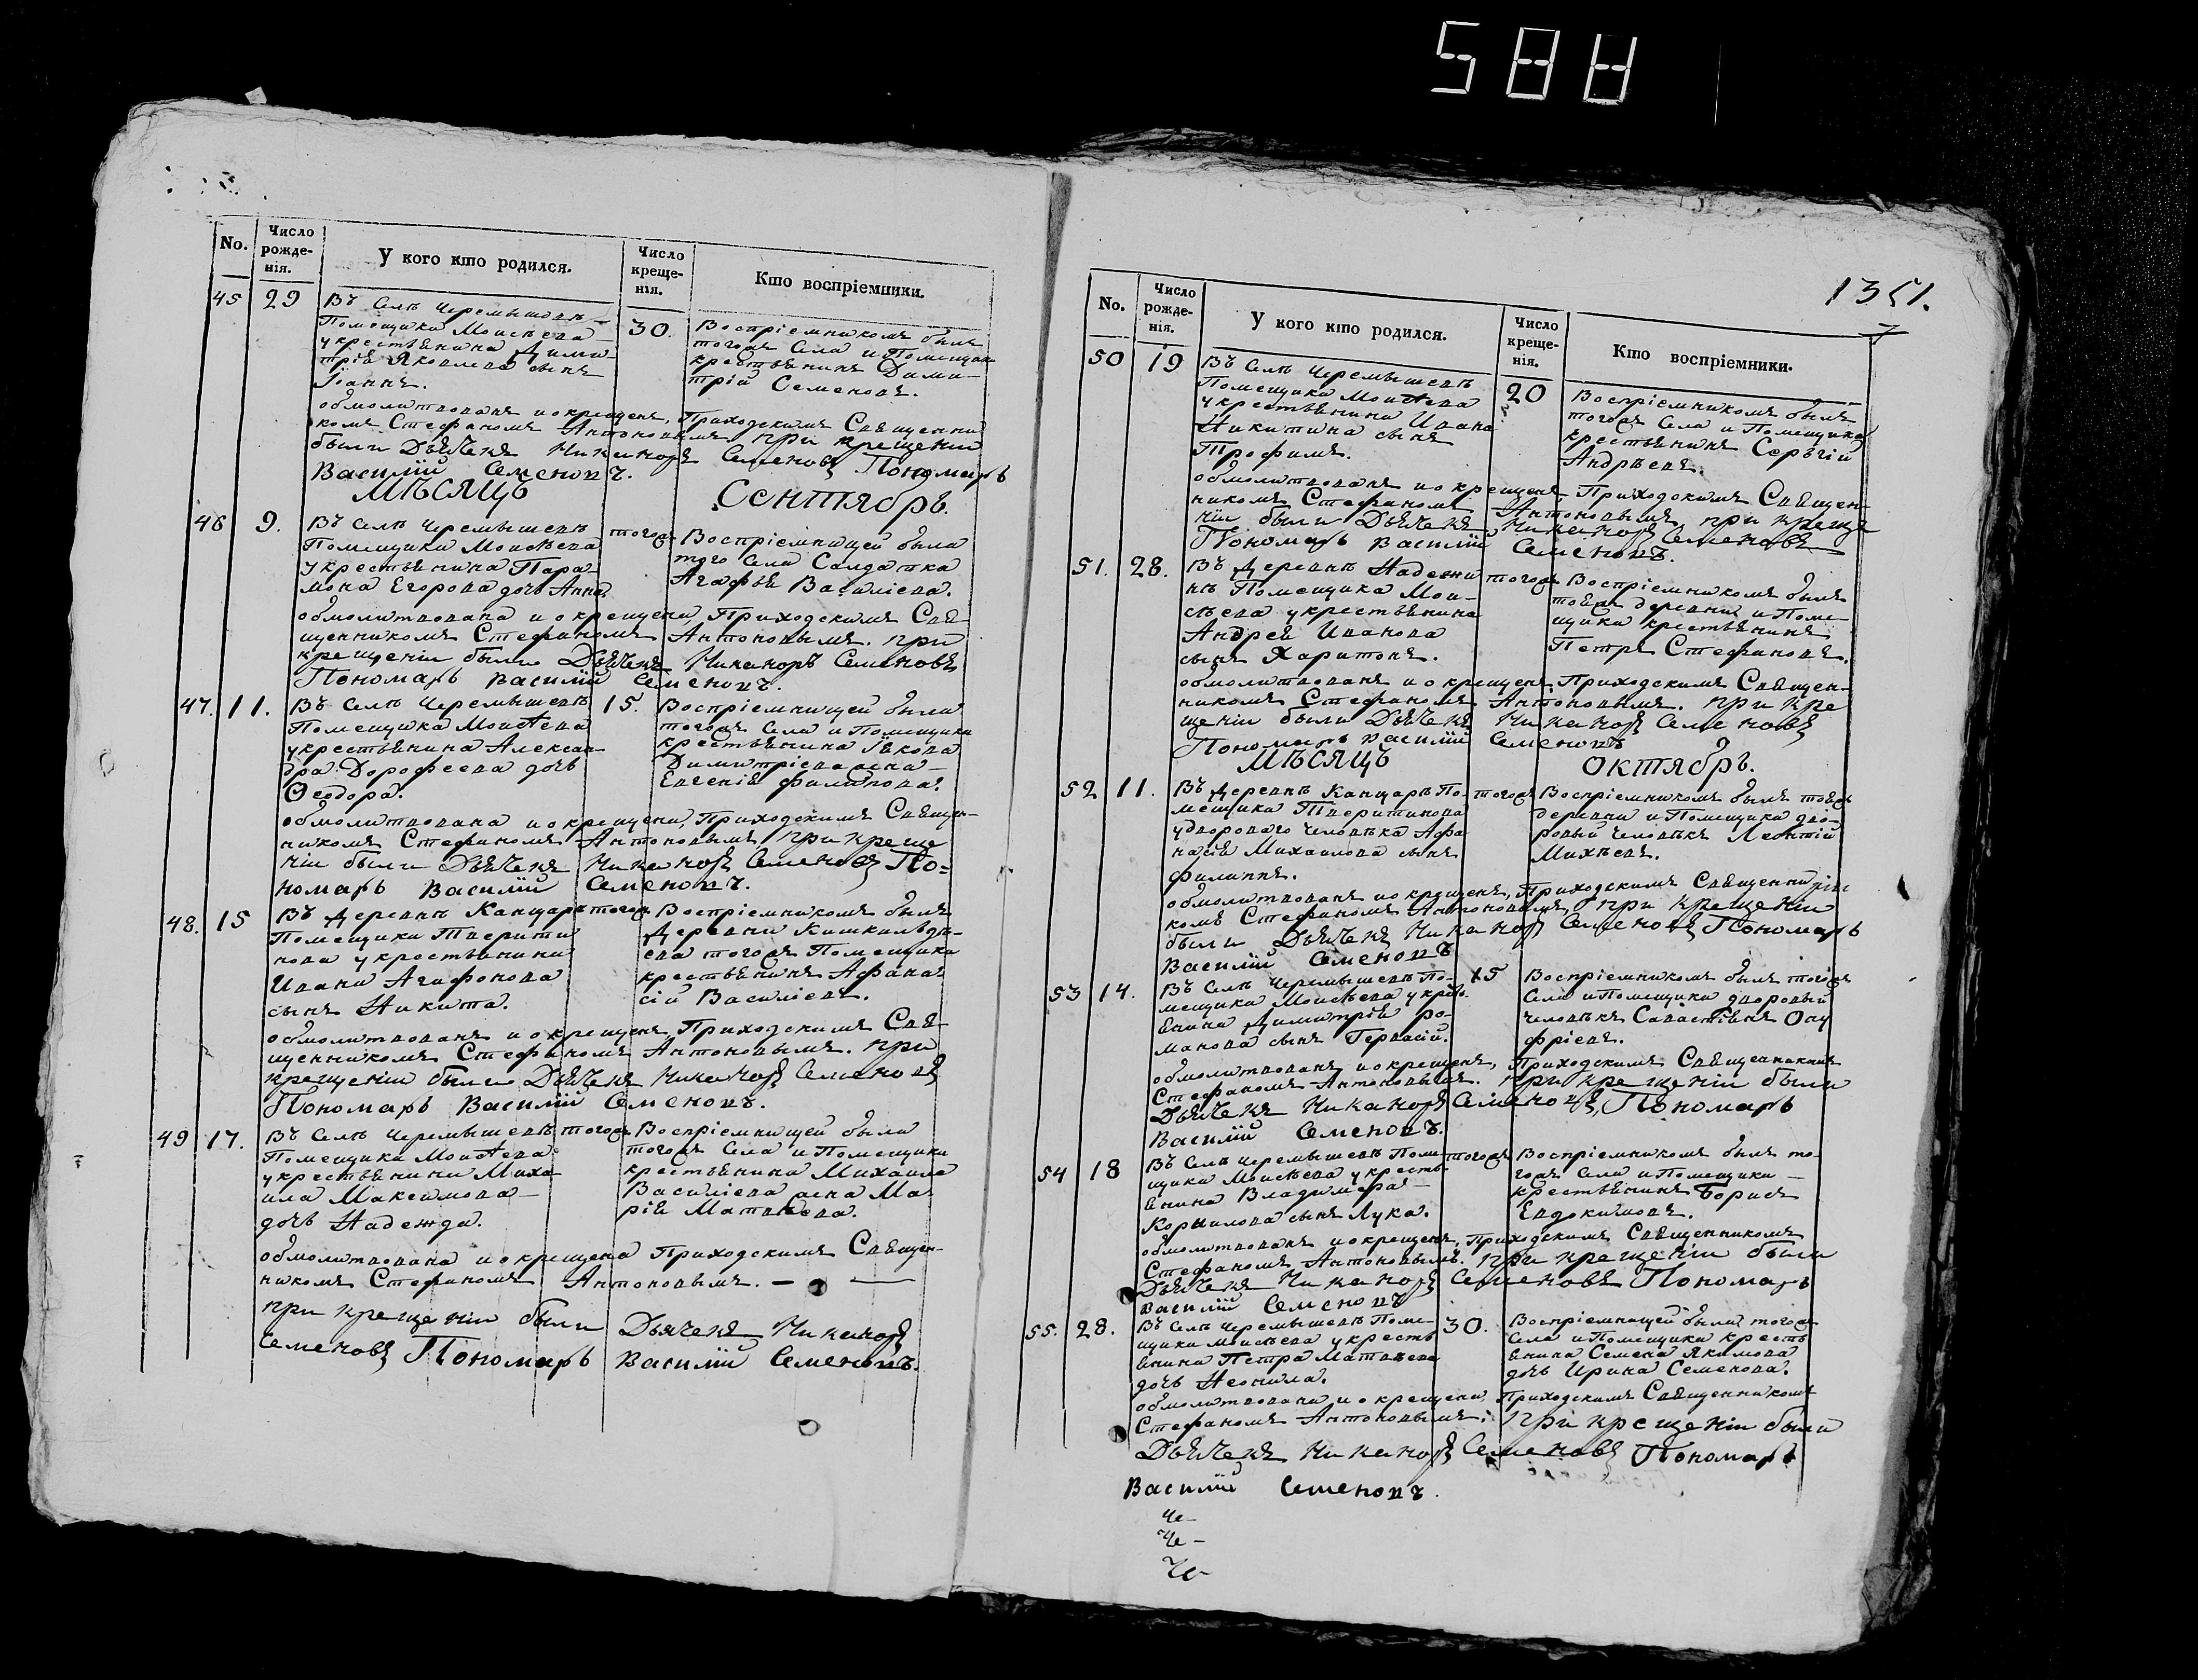 588
No. Число рожденія. У кого кто родился. Число крещенія. Кто воспріемники.
45 29 30.
Въ Селѣ Черемышевѣ
Помѣщика Моисѣева
у крестьянина Дими-
трія Яковлева сынъ
Іоаннъ.
Воспріемникомъ былъ
тогожъ Села и Помещика
крестьянинъ Дими-
трій Семеновъ.
обмолитвованъ и окрещенъ, Приходскимъ Священни
комъ Стефаномъ Антоновымъ при крещеніи
были Дьячекъ Никаноръ Семеновъ Пономарь
Василій Семеновъ.
МѢСЯЦЪ Сентябрь.
46 9. тогожъ
Въ Селѣ Черемышевѣ
Помещика Моисѣева
у крестьянина Пара-
мона Егорова дочь Анна
Воспріемницей была
того Села Салдатка
Агафья Василіева.
обмолитвована и окрещена, Приходскимъ Свя-
щенникомъ Стефаномъ Антоновымъ. при
крещеніи были Дьячекъ Никаноръ Семеновъ
Пономарь Василій Семеновъ.
47. 11. 15.
Въ Селѣ Черемышевѣ
Помещика Моисѣева
у крестьянина Алексан-
дра Дорофеева дочь
Ѳеодора.
Воспріемницей была
тогожъ Села и Помещика
крестьянина Іякова
Димитріева жена
Евгенія Филипова.
обмолитвована и окрещена, Приходскимъ Священ-
никомъ Стефаномъ Антоновымъ при креще
ніи были Дьячекъ Никаноръ Семеновъ По-
номарь Василій Семеновъ.
48. 15 тогожъ
Въ Деревнѣ Канцарѣ
Помещика Тверити
нова у крестьянина
Ивана Агафонова
сынъ Никита.
Воспріемникомъ былъ
Деревни
тогожъ Помещика
крестьянинъ Афана-
сій Василіевъ.
обмолитвованъ и окрещенъ Приходскимъ Свя-
щенникомъ Стефаномъ Антоновымъ. при
крещеніи были Дьячекъ Никаноръ Семеновъ
Пономарь Василій Семеновъ.
49 17. тогожъ
Въ Селѣ Черемышевѣ
Помещика Моисѣева
у крестьянина Миха-
ила Максимова
дочь Надежда.
Воспріемницей была
тогожъ Села и Помещика
крестьянина Михаила
Василіева жена Ма-
рія Матвѣева.
обмолитвована и окрещена Приходскимъ Священ-
никомъ Стефаномъ Антоновымъ.
при крещеніи были Дьячекъ Никаноръ
Семеновъ Пономарь Василій Семеновъ.
1351.
No. Число рожденія. У кого кто родился. Число крещенія. Кто воспріемники.
50 19 20
Въ Селѣ Черемышевѣ
Помещика Моисѣева
у крестьянина Ивана
Никитина сынъ
Трофимъ.
Воспріемникомъ былъ
тогожъ Села и Помещика
крестьянинъ Сергѣй
Андрѣевъ.
обмолитвованъ и окрещенъ, Приходскимъ Священ-
никомъ Стефаномъ Антоновымъ, при креще
ніи были Дьячекъ Никаноръ Семеновъ
Пономарь Василій Семеновъ.
51. 28. тогожъ
Въ Деревнѣ
Помещика Мои-
сѣева у крестьянина
Андрея Иванова
сынъ Харитонъ.
Воспріемникомъ былъ
тояжъ деревни и Поме-
щика крестьянинъ
Петръ Стефановъ.
обмолитвованъ и окрещенъ, Приходскимъ Священ-
никомъ Стефаномъ Антоновымъ. при кре
щеніи были Дьячекъ Никаноръ Семеновъ
Пономарь Василій Семеновъ
МѢСЯЦЪ ОКТЯбрь.
52 11. тогожъ
Въ Деревнѣ Канцарѣ По-
мещика Тверитинова
у двороваго человѣка Афа-
насія Михаилова сынъ
Филиппъ.
Воспріемникомъ былъ тояжъ
деревни и Помещика дво-
ровый человѣкъ Леонтій
Михѣевъ.
обмолитвованъ и окрещенъ, Приходскимъ Священни
комъ Стефаномъ Антоновымъ, при крещеніи
были Дьячекъ Никаноръ Семеновъ Пономарь
Василій Семеновъ
53 14. 15
Въ Селѣ Черемышевѣ По-
мещика Моисѣева у кресть-
янина Димитрія Ро-
манова сынъ Гервасій.
Воспріемникомъ былъ тогожъ
Села и Помещика дворовый
человѣкъ Савастіянъ Ону
фріевъ.
обмолитвованъ и окрещенъ, Приходскимъ Священникомъ
Стефаномъ Антоновымъ. при крещеніи были
Дьячекъ Никаноръ Семеновъ, Пономарь
Василій Семеновъ.
54 18 тогожъ
Въ Селѣ Черемышевѣ Поме-
щика Моисѣева у кресть-
янина Владимера
Корнилова сынъ Лука.
Воспріемникомъ былъ то-
гожъ Села и Помещика
крестьянинъ Борисъ
Евдокимовъ.
обмолитвованъ и окрещенъ, Приходскимъ Священникомъ
Стефаномъ Антоновымъ. при крещеніи были
Дьячекъ Никаноръ Семеновъ Пономарь
Василій Семеновъ
55. 28. 30.
Въ Селѣ Черемышевѣ Поме-
щика Моисѣева у кресть
янина Петра Матвѣева
дочь Неонила.
Воспріемницей была тогожъ
Села и Помещика кресть
янина Семена Якимова
дочь Ирина Семенова.
обмолитвована и окрещена, Приходскимъ Священникомъ
Стефаномъ Антоновымъ. при крещеніи были
Дьячекъ Никаноръ Семеновъ Пономарь
Василій Семеновъ.
Че-
Че-
Че-